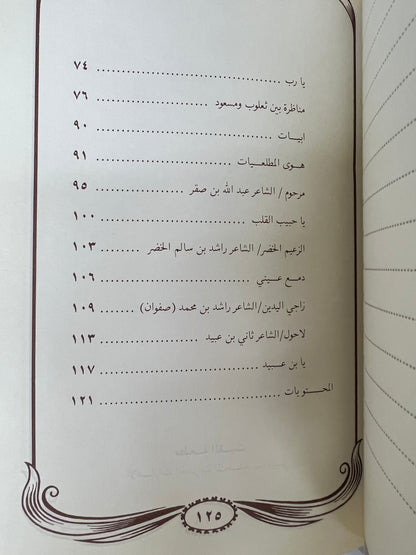 يا رب ................................ ٧٤
مناظرة بين ثعلوب ومسعود ................ ٧٦
ابيات .......................... ٩٠
هوى المطلعيات ........................ ٩١
مرحوم / الشاعر عبد الله بن صقر .................... ٩٥
يا حبيب القلب ........................ ١٠٠
الزعيم الخضر/ الشاعر راشد بن سالم الخضر ........ ١٠٣
دمع عيني ........................ ١٠٦
زاجي اليدين/الشاعر راشد بن محمد (صفوان) ....... ١٠٩
لاحول/الشاعر ثاني بن عبيد .................. ١١٣
يا بن عبيد ........................ ١١٧
المحتويات ........................ ١٢١
١٢٥